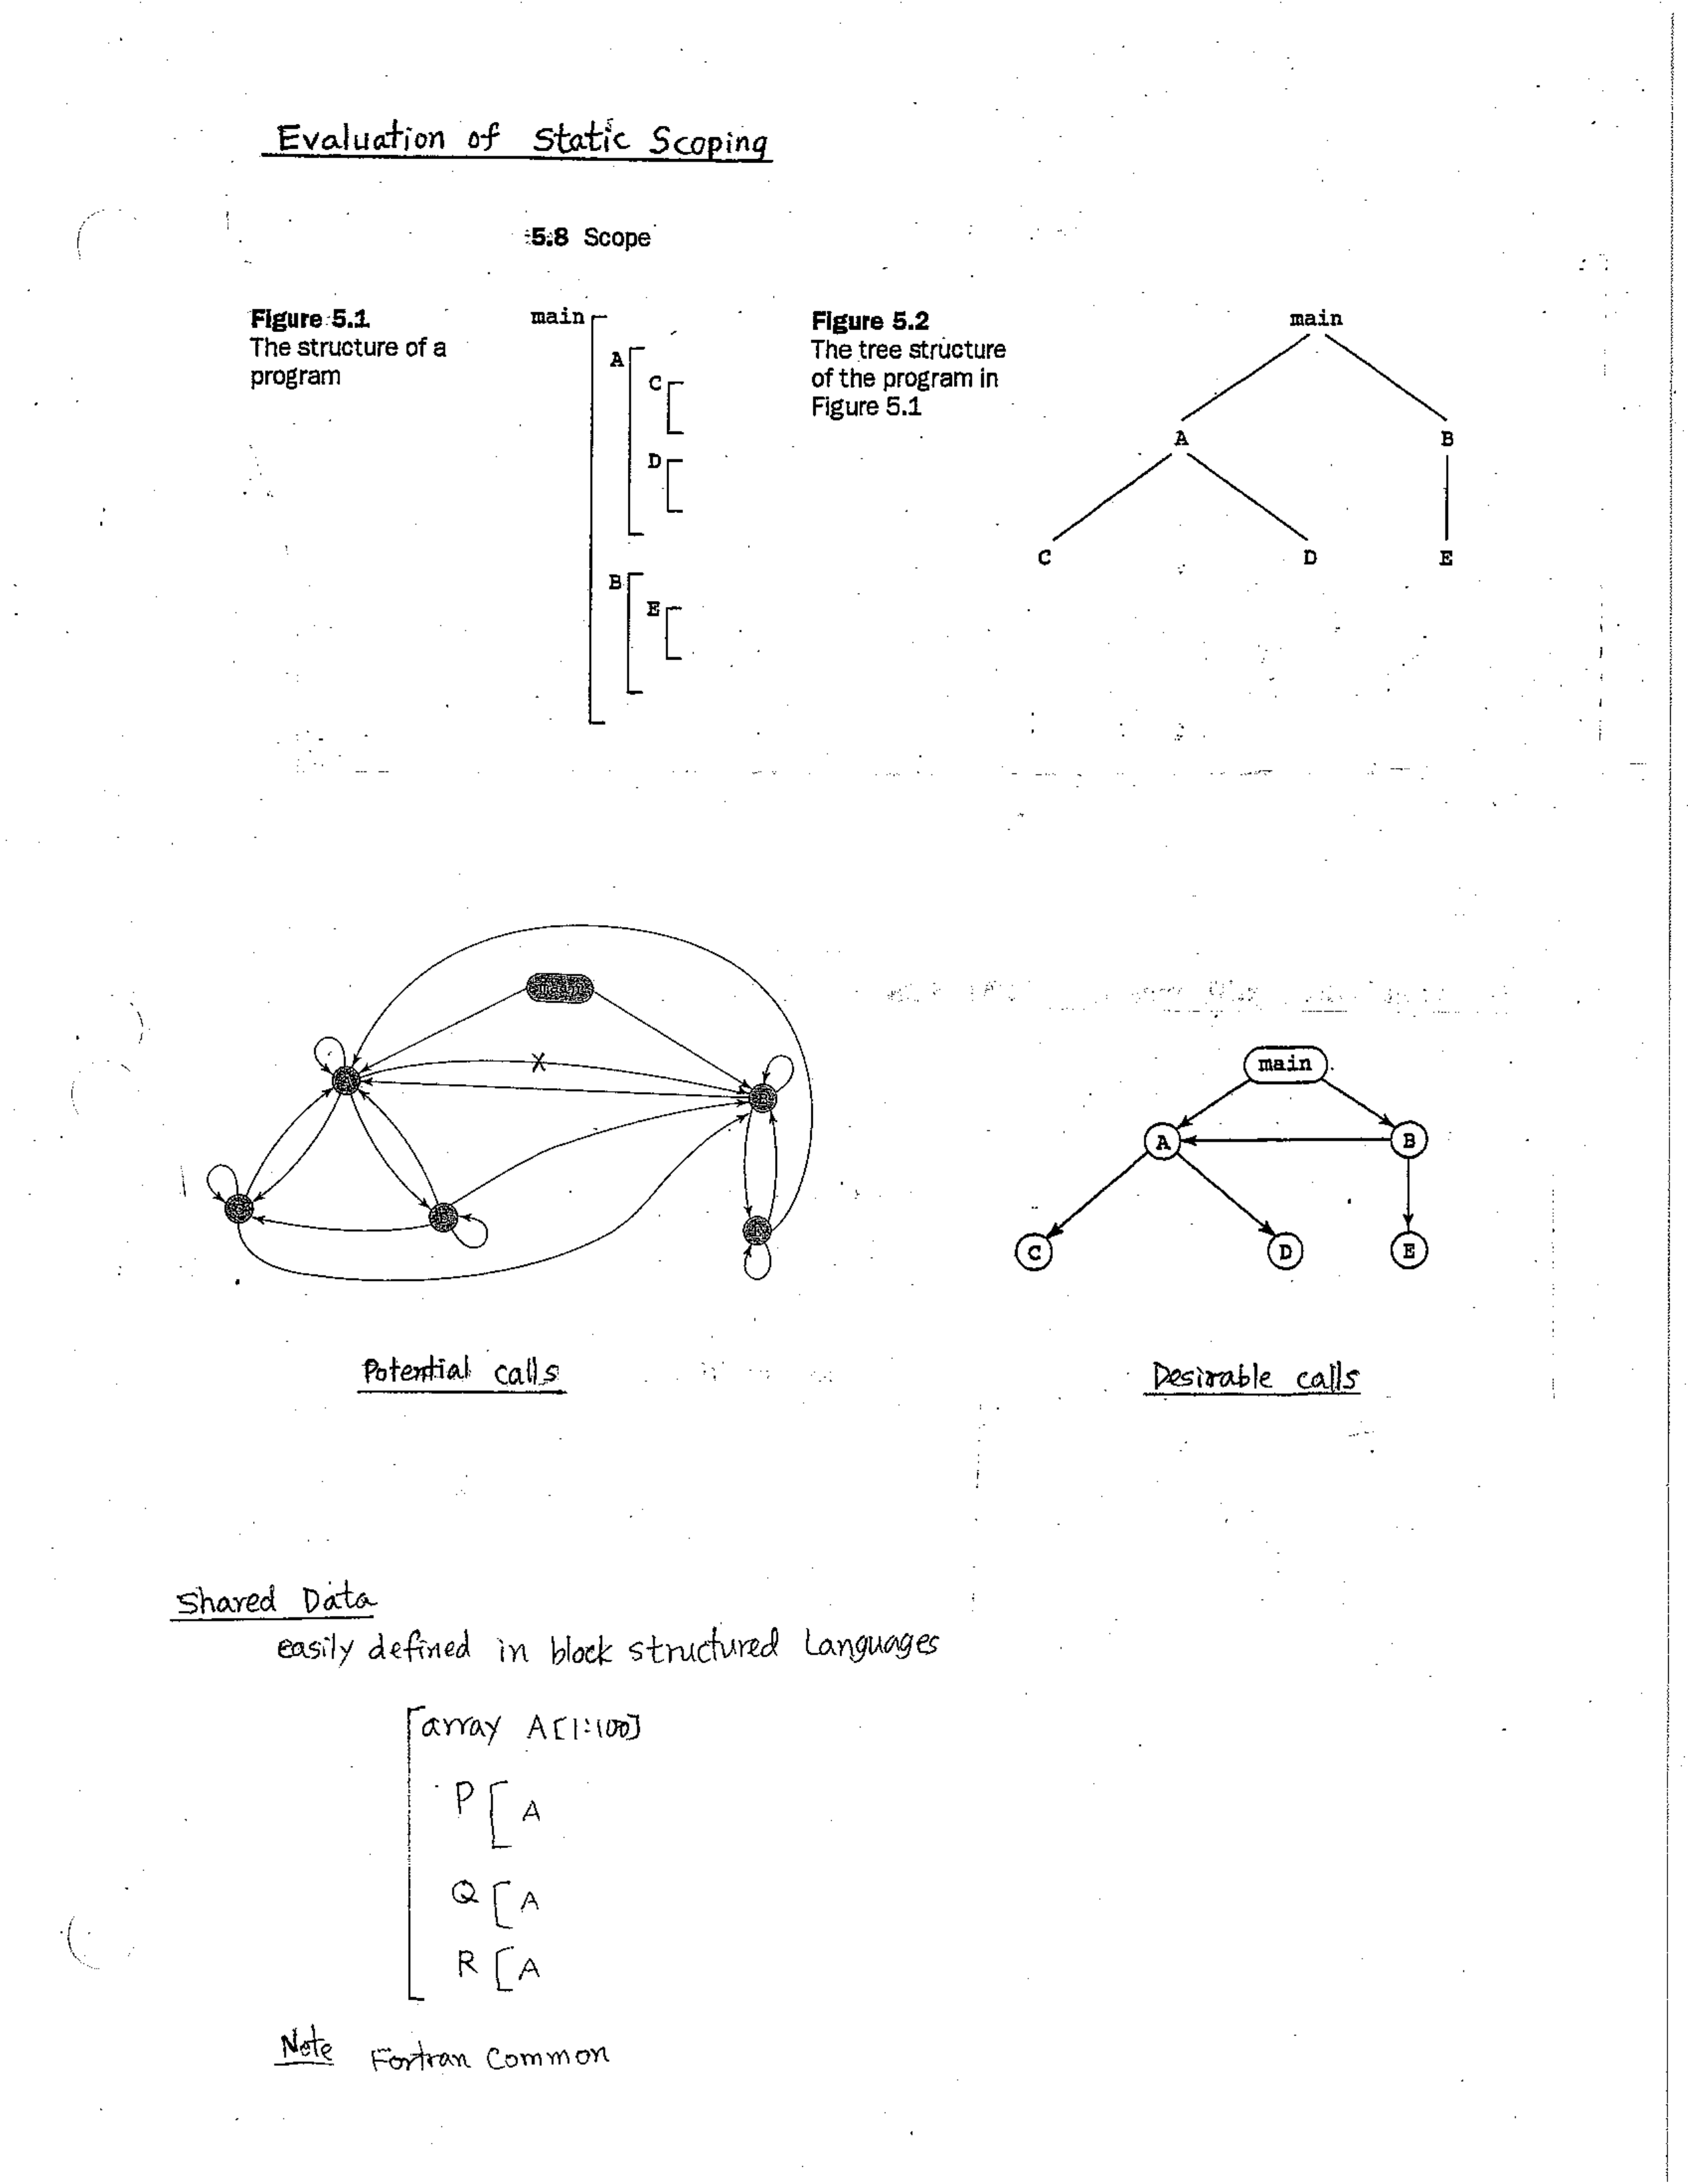 Evaluation of Static Scoping
5.8 Scope
Figure 5.1
The structure of a
program
main
A
C
D
B
E
Figure 5.2
The tree structure
of the program in
Figure 5.1
main
A
B
C
D
E
X
A
B
main
A
B
C
D
E
Potential calls
Desirable calls
Shared Data
easily defined in block structured Languages
array A[1:100]
P [ A
Q [ A
R [ A
Note Fortran Common